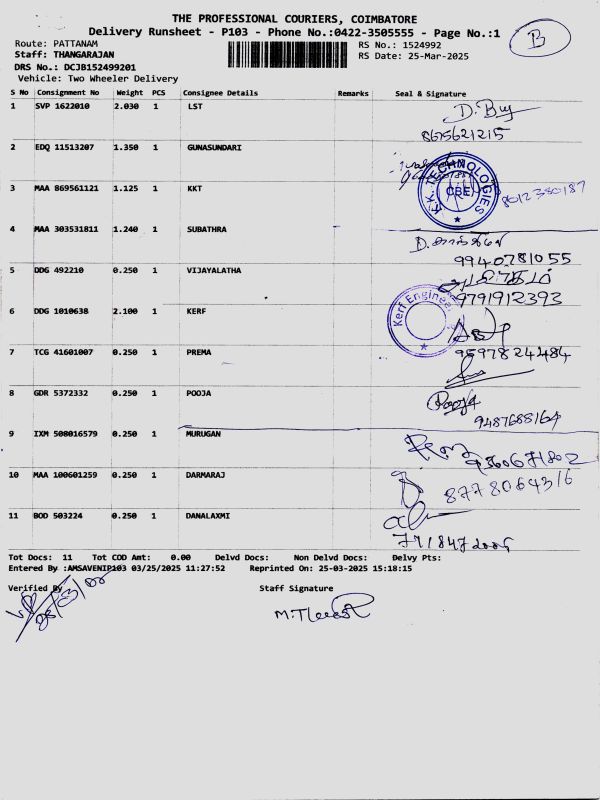 THE PROFESSIONAL COURIERS, COIMBATORE
Delivery Runsheet - P103 - Phone No.:0422-3505555 - Page No.:1
B
Route: PATTANAM
RS No.: 1524992
Staff: THANGARAJAN
RS Date: 25-Mar-2025
DRS No.: DCJB152499201
Vehicle: Two Wheeler Delivery
S No Consignment No Weight PCS Consignee Details Remarks Seal & Signature
1 SVP 1622010 2.030 1 LST
8675621215
2 EDQ 11513207 1.350 1 GUNASUNDARI
3 MAA 869561121 1.125 1 KKT
K.K. TECHNOLOGIES
CBE
8012380187
4 MAA 303531811 1.240 1 SUBATHRA
9940781055
5 DDG 492210 0.250 1 VIJAYALATHA
9791912393
6 DDG 1010638 2.100 1 KERF
Kerf Engineer
7 TCG 41601007 0.250 1 PREMA
9597824484
8 GDR 5372332 0.250 1 POOJA
Pooja
9487688164
9 IXM 508016579 0.250 1 MURUGAN
10 MAA 100601259 0.250 1 DARMARAJ
8778064316
11 BOD 503224 0.250 1 DANALAXMI
Tot Docs: 11 Tot COD Amt: 0.00 Delvd Docs: Non Delvd Docs: Delvy Pts:
Entered By :AMSAVENIP103 03/25/2025 11:27:52 Reprinted On: 25-03-2025 15:18:15
Verified By
Staff Signature